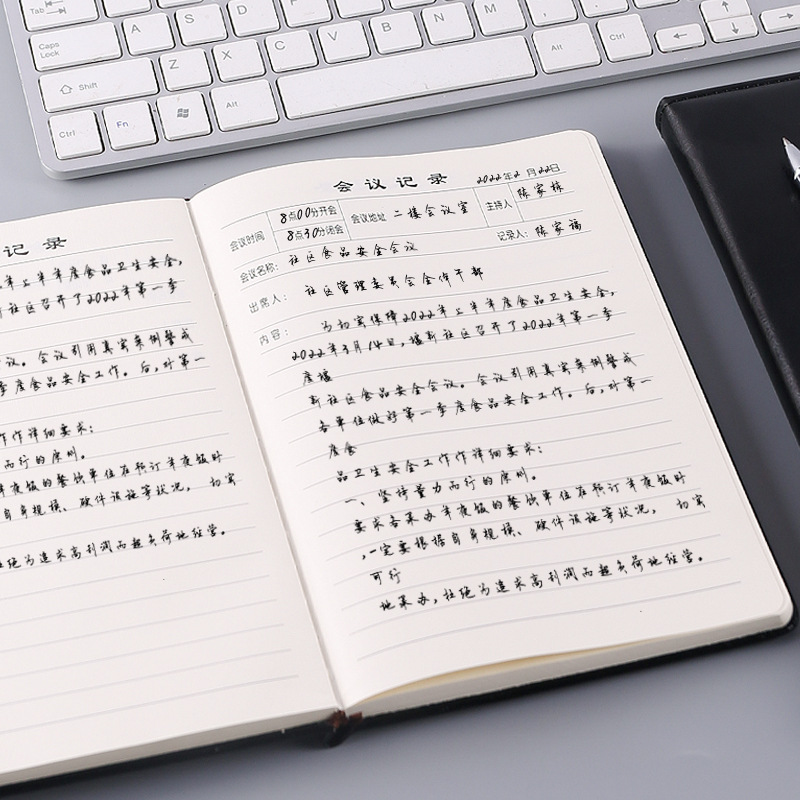 Tab
Caps Lock
A
S
D
F
G
H
Shift
Z
X
C
V
B
N
M
Alt
Ctrl
Ctrl
Fn
Alt
记录
年上半年度食品卫生安全,
社区召开了2022年第一季
议。会议引用真实案例警戒
季度食品安全工作。后,对第一
作作详细要求:
而行的原则。
年夜饭的餐饮单位在预订年夜饭时
自身规模、硬件设施等状况, 切实
杜绝为追求高利润而超负荷地经营。
会议记录
2022年2月22日
会议时间
8点00分开会
8点30分闭会
会议地址 二楼会议室
主持人 陈家栋
会议名称: 社区食品安全会议
记录人: 陈家福
出席人: 社区管理委员会全体干部
内容: 为切实保障2022年上半年度食品卫生安全,
2022年3月14日,墙新社区召开了2022年第一季
度墙
新社区食品安全会议。会议引用真实案例警戒
各单位做好第一季度食品安全工作。后,对第一
度食
品卫生安全工作作详细要求:
一、坚持量力而行的原则。
要求各承办年夜饭的餐饮单位在预订年夜饭时
,一定要根据自身规模、硬件设施等状况, 切实
可行
地承办,杜绝为追求高利润而超负荷地经营。